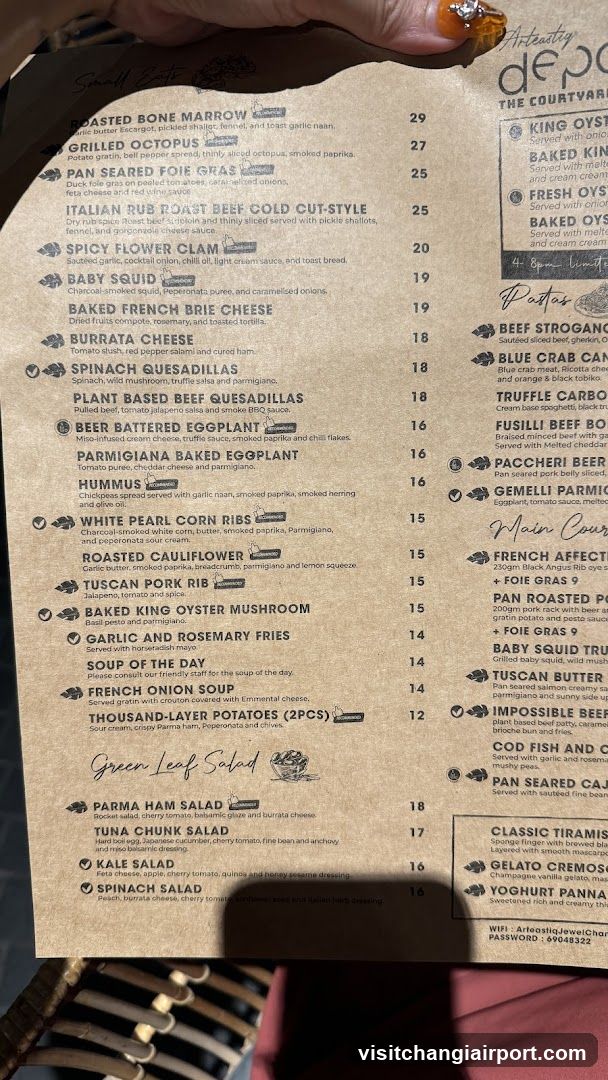 Small Eats
ROASTED BONE MARROW RECOMMENDED 29
Garlic butter Escargot, pickled shallot, fennel, and toast garlic naan.
GRILLED OCTOPUS RECOMMENDED 27
Potato gratin, bell pepper spread, thinly sliced octopus, smoked paprika.
PAN SEARED FOIE GRAS RECOMMENDED 25
Duck foie gras on peeled tomatoes, caramelized onions,
feta cheese and red wine sauce
ITALIAN RUB ROAST BEEF COLD CUT-STYLE 25
Dry rub spice Roast beef sirloin and thinly sliced served with pickle shallots,
fennel, and gorgonzola cheese sauce.
SPICY FLOWER CLAM RECOMMENDED 20
Sautéed garlic, cocktail onion, chilli oil, light cream sauce, and toast bread.
BABY SQUID RECOMMENDED 19
Charcoal-smoked squid, Peperonata puree, and caramelised onions.
BAKED FRENCH BRIE CHEESE 19
Dried fruits compote, rosemary, and toasted tortilla.
BURRATA CHEESE 18
Tomato slush, red pepper salami and cured ham.
SPINACH QUESADILLAS 18
Spinach, wild mushroom, truffle salsa and parmigiano.
PLANT BASED BEEF QUESADILLAS 18
Pulled beef, tomato jalapeno salsa and smoke BBQ sauce.
BEER BATTERED EGGPLANT RECOMMENDED 16
Miso-infused cream cheese, truffle sauce, smoked paprika and chili flakes.
PARMIGIANA BAKED EGGPLANT 16
Tomato puree, cheddar cheese and parmigiano.
HUMMUS RECOMMENDED 16
Chickpeas spread served with garlic naan, smoked paprika, smoked herring
and olive oil.
WHITE PEARL CORN RIBS RECOMMENDED 15
Charcoal-smoked white corn, butter, smoked paprika, Parmigiano,
and peperonata sour cream.
ROASTED CAULIFLOWER RECOMMENDED 15
Garlic butter, smoked paprika, breadcrumb, parmigiano and lemon squeeze
TUSCAN PORK RIB RECOMMENDED 15
Jalapeno, tomato and spice.
BAKED KING OYSTER MUSHROOM 15
Basil pesto and parmigiano.
GARLIC AND ROSEMARY FRIES 14
Served with horseradish mayo
SOUP OF THE DAY 14
Please consult our friendly staff for the soup of the day.
FRENCH ONION SOUP 14
Served gratin with crouton covered with Emmental cheese.
THOUSAND-LAYER POTATOES (2PCS) RECOMMENDED 12
Sour cream, crispy Parma ham, Peperonata and chives.
Green Leaf Salad
PARMA HAM SALAD RECOMMENDED 18
Rocket salad, cherry tomato, balsamic glaze and burrata cheese.
TUNA CHUNK SALAD 17
Hard boil egg, Japanese cucumber, cherry tomato, fine bean and anchovy
and miso balsamic dressing.
KALE SALAD 16
Feta cheese, apple, cherry tomato, quinoa and honey sesame dressing.
SPINACH SALAD 16
Peach, burrata cheese, cherry tomato, sunflower seed and italian herb dressing.
Arteastiq
depo
THE COURTYARD
KING OYST
Served with onio
BAKED KIN
Served with melte
and cream cream
FRESH OYS
Served with onio
BAKED OYS
Served with melte
and cream cream
4-8pm limite
Pastas
BEEF STROGANO
Sautéed sliced beef, gherkin, O
BLUE CRAB CAN
Blue crab meat, Ricotta chee
and orange & black tobiko.
TRUFFLE CARBO
Cream base spaghetti, black tru
FUSILLI BEEF BO
Braised minced beef with ga
Served with Melted cheddar
PACCHERI BEER
Pan seared pork belly sliced,
GEMELLI PARMIG
Eggplant, tomato sauce, melted
Main Cour
FRENCH AFFECTI
230gm Black Angus Rib eye s
+ FOIE GRAS 9
PAN ROASTED PO
200gm pork rack with beer a
gratin potato and pesto sauce
+ FOIE GRAS 9
BABY SQUID TRU
Grilled baby squid, wild mush
TUSCAN BUTTER
Pan seared salmon creamy sa
parmigiano and sunny side up
IMPOSSIBLE BEEF
plant based beef patty, carame
brioche bun and fries.
COD FISH AND C
Served with garlic and rosema
mushy peas.
PAN SEARED CAJ
Served with sautéed fine bean
CLASSIC TIRAMIS
Sponge finger with brewed bla
Layered with smooth mascarpo
GELATO CREMOS
Champagne vanilla gelato, mas
YOGHURT PANNA
Sweetened rich and creamy thi
WIFI : ArteastiqJewelChan
PASSWORD : 69048322
visitchangiairport.com